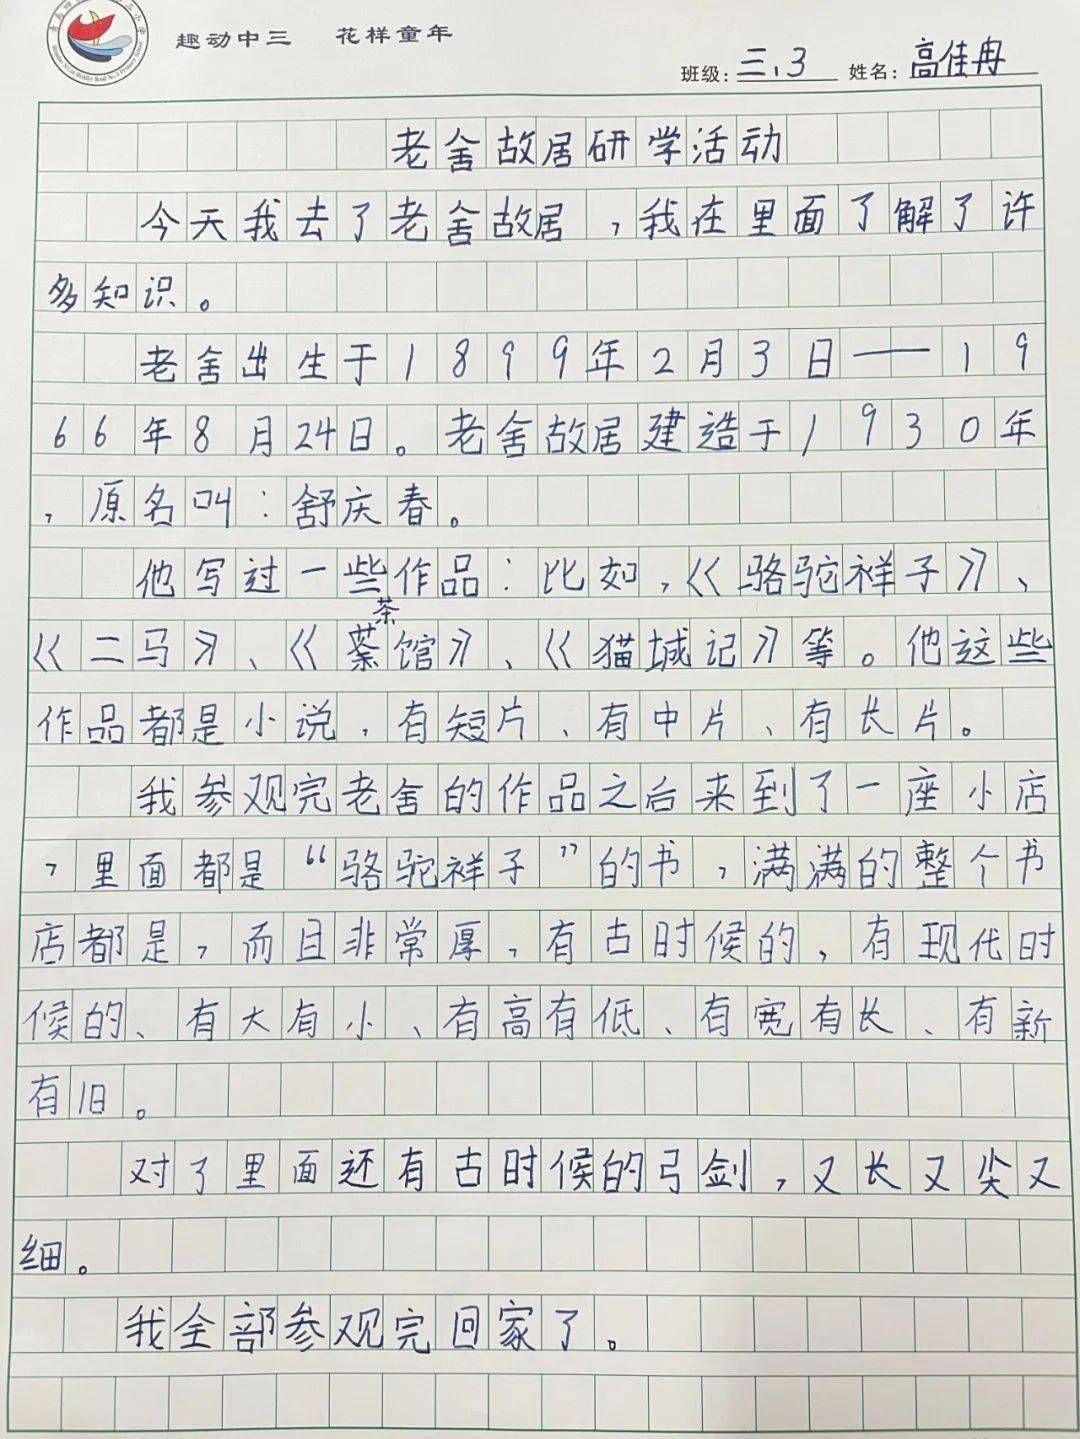 趣动中三 花样童年
班级：三、3 姓名：高佳冉
老舍故居研学活动
今天我去了老舍故居，我在里面了解了许
多知识。
老舍出生于1899年2月3日——19
66年8月24日。老舍故居建造于1930年
，原名叫：舒庆春。
他写过一些作品：比如，《骆驼祥子》、
茶
《二马》、《馆》、《猫城记》等。他这些
作品都是小说，有短片、有中片、有长片。
我参观完老舍的作品之后来到了一座小店
，里面都是“骆驼祥子”的书，满满的整个书
店都是，而且非常厚，有古时候的，有现代时
候的、有大有小、有高有低、有宽有长、有新
有旧。
对了里面还有古时候的弓剑，又长又尖又
细。
我全部参观完回家了。